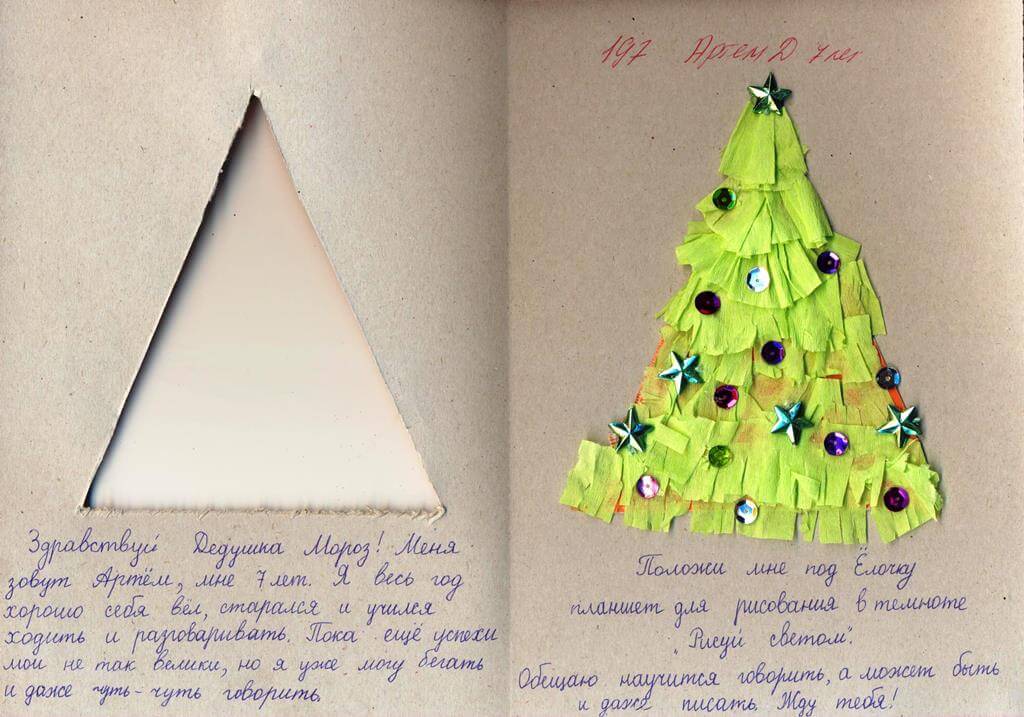 197 Артем Д 7 лет
Здравствуй Дедушка Мороз! Меня
зовут Артём, мне 7 лет. Я весь год
хорошо себя вёл, старался и учился
ходить и разговаривать. Пока ещё успехи
мои не так велики, но я уже могу бегать
и даже чуть-чуть говорить.
Положи мне под Ёлочку
планшет для рисования в темноте
"Рисуй светом".
Обещаю научится говорить, а может быть
и даже писать. Жду тебя!